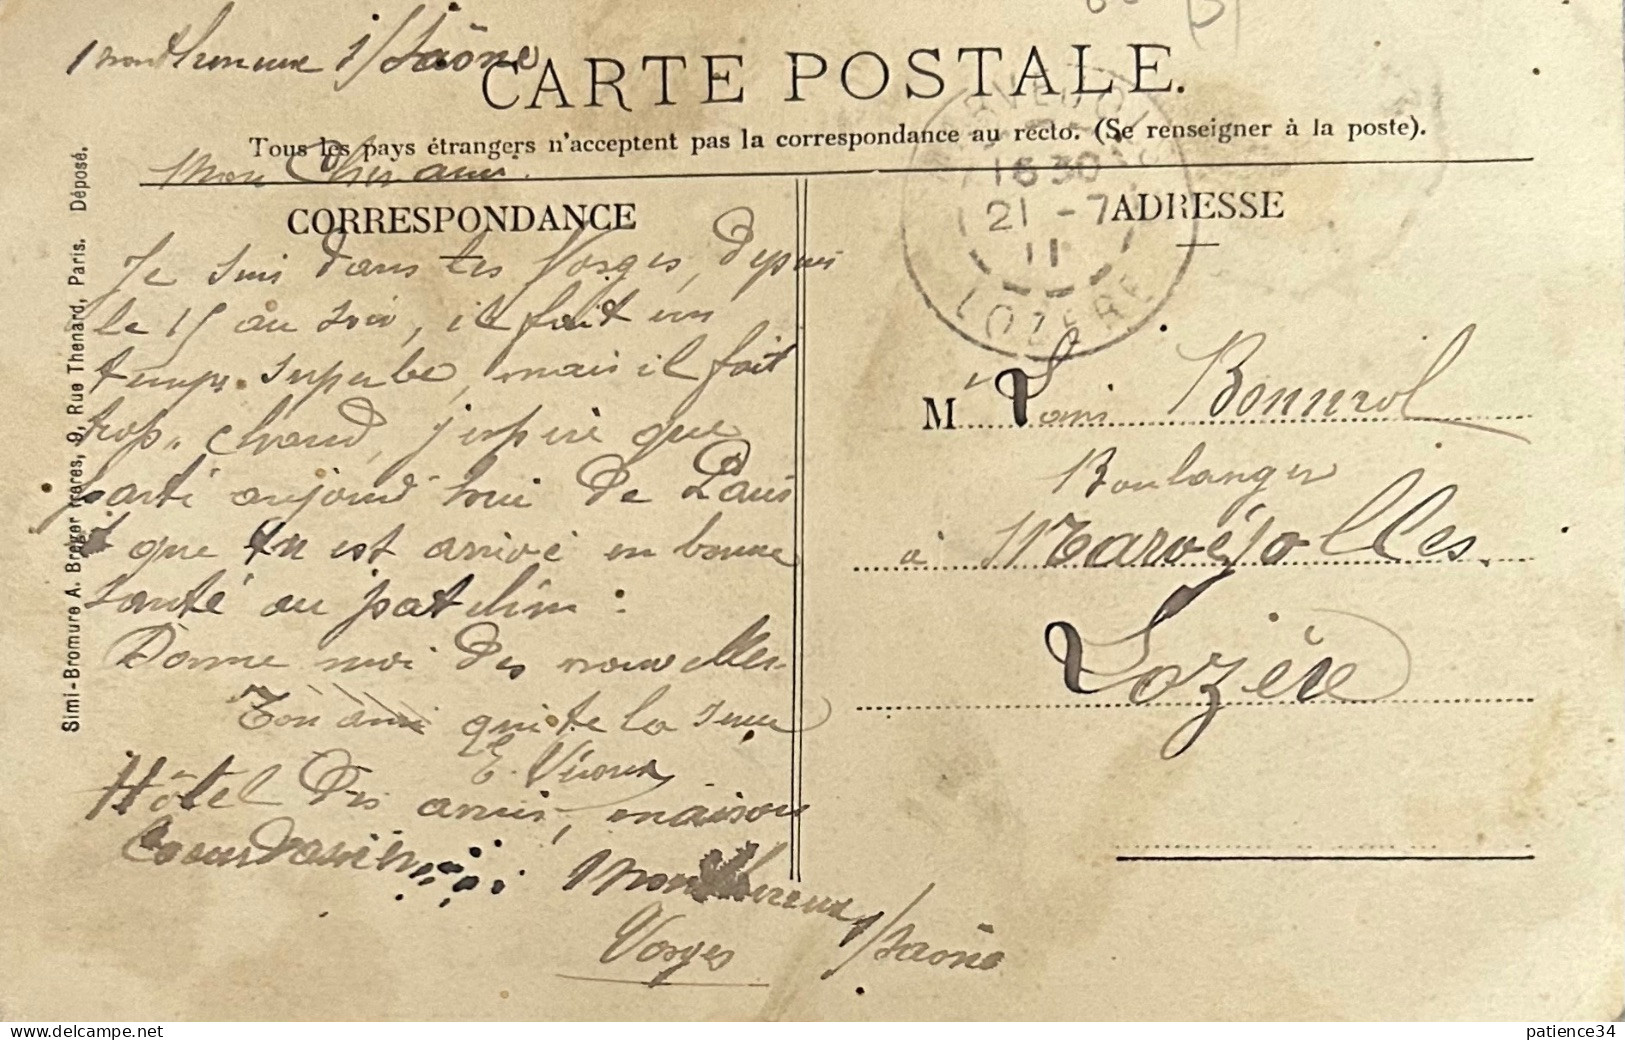 Monthureux s/Saône
CARTE POSTALE.
Tous les pays étrangers n'acceptent pas la correspondance au recto. (Se renseigner à la poste).
Mon Cher ami.
CORRESPONDANCE
Je suis dans les Vosges, depuis
le 15 au soir, il fait un
temps superbe, mais il fait
trop chaud, j'espère que
parti aujourd'hui de Paris
que tu est arrivé en bonne
santé au patelin :
Donne moi des nouvelles
Ton ami qui te la serre
E.
Hôtel des amis, maison
Monthureux s/Saône
Vosges
Simi-Bromure A. Breger frères, 9, Rue Thenard, Paris. Déposé.
16 30
21 - 7
11
LOZERE
ADRESSE
M Louis Bonnrol
Boulanger
à Marvéjolles.
Lozère
patience34